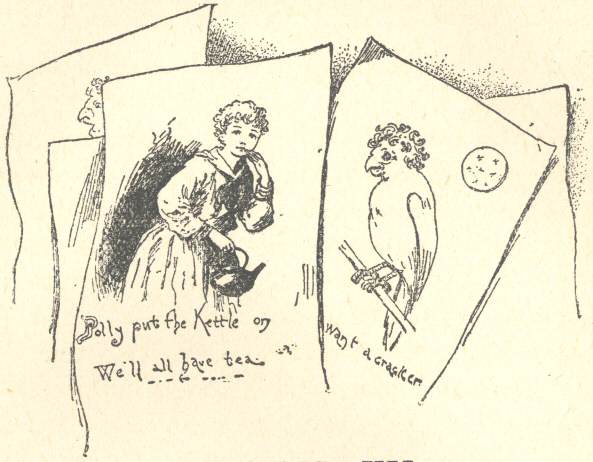 Polly put the Kettle on
We'll all have tea.
want a cracker